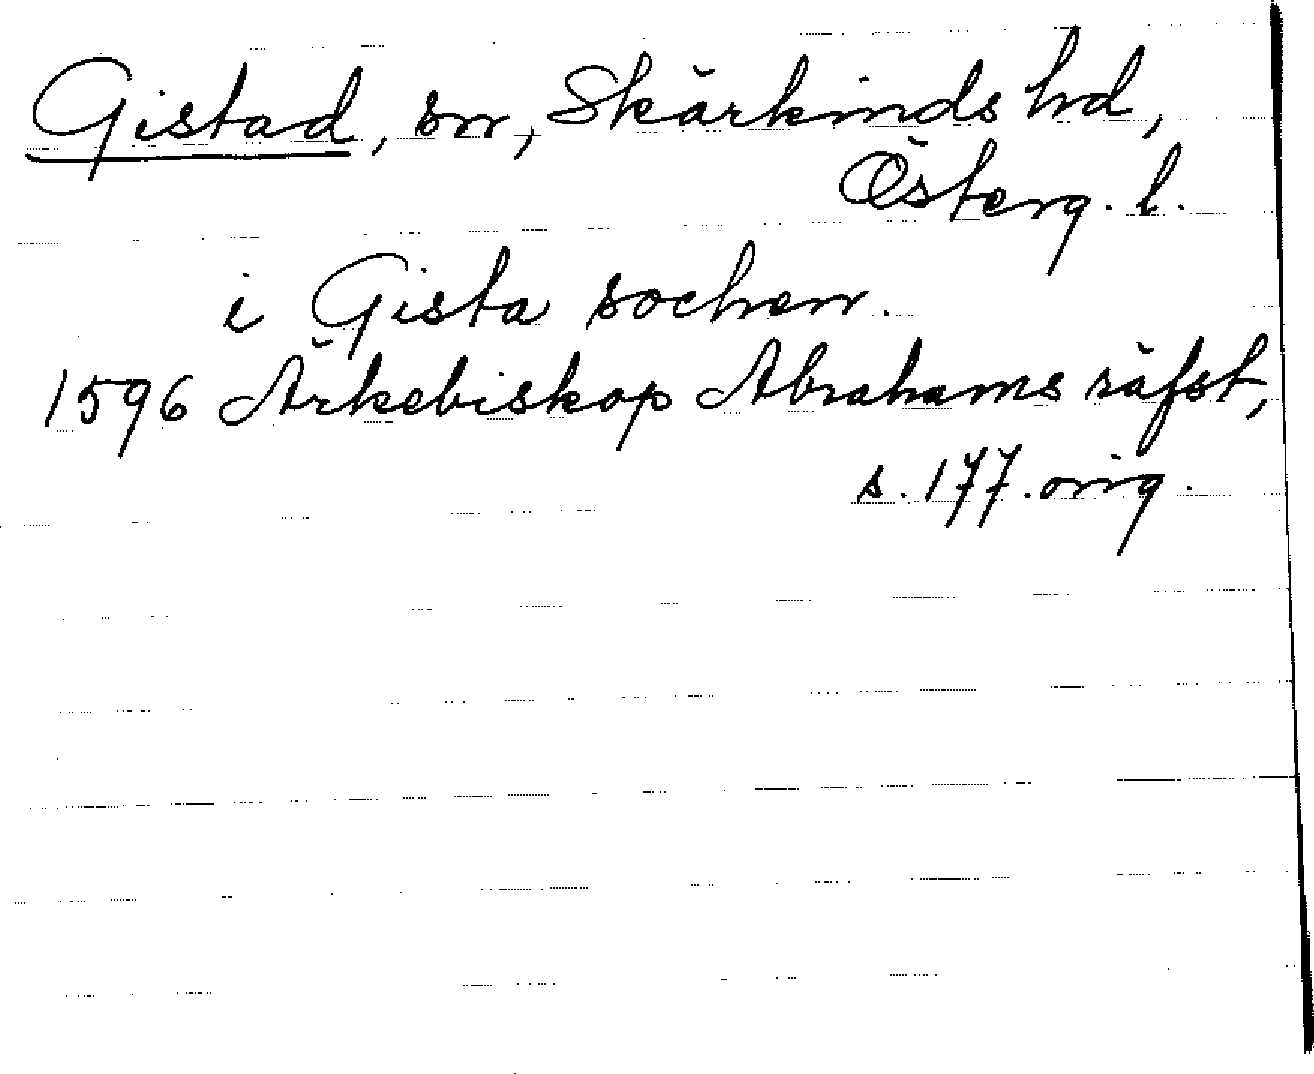 Gistad, sn, Skärkinds hd,
Österg. l.
i Gista sochen.
1596 Ärkebiskop Abrahams räfst,
s. 177. orig.